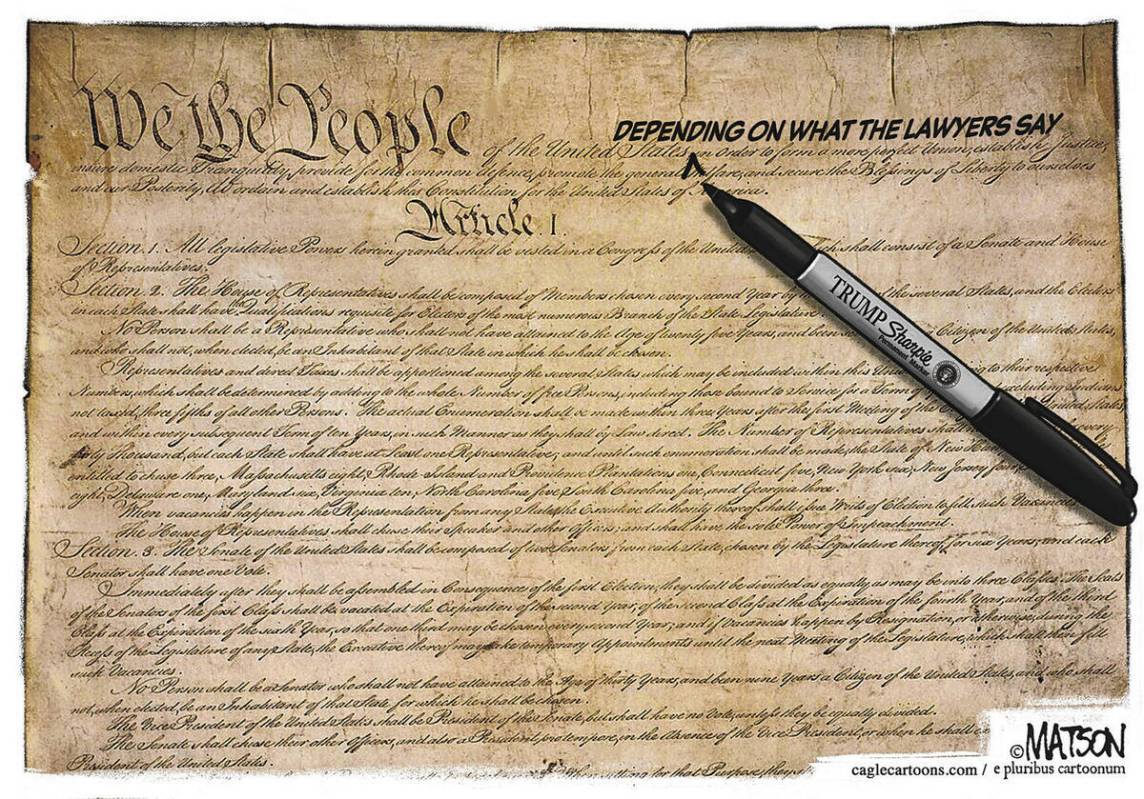 DEPENDING ON WHAT THE LAWYERS SAY
^
We the People of the United States, in Order to form a more perfect Union, establish Justice,
insure domestic Tranquility, provide for the common defence, promote the general Welfare, and secure the Blessings of Liberty to ourselves
and our Posterity, do ordain and establish this Constitution for the United States of America.
Article I.
Section. 1. All legislative Powers herein granted shall be vested in a Congreſs of the United which shall consist of a Senate and House
of Representatives.
Section. 2. The House of Representatives shall be composed of Members chosen every second Year by the several States, and the Electors
in each State shall have the Qualifications requisite for Electors of the most numerous Branch of the State Legislature
No Person shall be a Representative who shall not have attained to the Age of twenty five Years, and been Citizen of the United States,
and who shall not, when elected, be an Inhabitant of that State in which he shall be chosen.
Representatives and direct Taxes shall be apportioned among the several States which may be included within this to their respective
Numbers, which shall be determined by adding to the whole Number of free Persons, including those bound to Service for a Term excluding Indians
not taxed, three fifths of all other Persons. The actual Enumeration shall be made within three Years after the first Meeting of the United States
and within every subsequent Term of ten Years, in such Manner as they shall by Law direct. The Number of Representatives shall every
thirty Thousand, but each State shall have at Least one Representative; and until such enumeration shall be made, the State of New
entitled to chuse three, Maſsachusetts eight, Rhode-Island and Providence Plantations one, Connecticut five, New York six, New Jersey four,
eight, Delaware one, Maryland six, Virginia ten, North Carolina five, South Carolina five, and Georgia three.
When vacancies happen in the Representation from any State, the Executive Authority thereof shall iſsue Writs of Election to fill such Vacancies.
The House of Representatives shall chuse their Speaker and other Officers; and shall have the sole Power of Impeachment.
Section. 3. The Senate of the United States shall be composed of two Senators from each State, chosen by the Legislature thereof, for six Years; and each
Senator shall have one Vote.
Immediately after they shall be aſsembled in Consequence of the first Election, they shall be divided as equally as may be into three Claſses. The Seats
of the Senators of the first Claſs shall be vacated at the Expiration of the second Year, of the second Claſs at the Expiration of the fourth Year, and of the third
Claſs at the Expiration of the sixth Year, so that one third may be chosen every second Year; and if Vacancies happen by Resignation, or otherwise, during the
Receſs of the Legislature of any State, the Executive thereof may make temporary Appointments until the next Meeting of the Legislature, which shall then fill
such Vacancies.
No Person shall be a Senator who shall not have attained to the Age of thirty Years, and been nine Years a Citizen of the United States, and who shall
not, when elected, be an Inhabitant of that State for which he shall be chosen.
The Vice President of the United States shall be President of the Senate, but shall have no Vote, unleſs they be equally divided.
The Senate shall chuse their other Officers, and also a President pro tempore, in the Absence of the Vice President, or when he shall
President of the United States.
sitting for that Purpose, they
TRUMP Sharpie
Permanent Marker
© MATSON
caglecartoons.com / e pluribus cartoonum